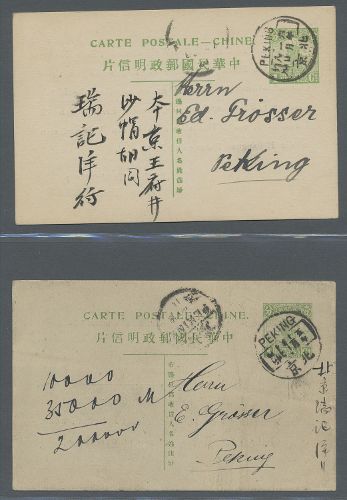 CARTE POSTALE—CHINE.
中華民國郵政明信片
PEKING
北京
Herrn
Ed. Grösser
Peking
本京王府井
沙帽胡同
瑞記洋行
CARTE POSTALE—CHINE.
中華民國郵政明信片
PEKING
北京
10000
35000 M
200000
Herrn
E. Grösser
Peking
北京瑞記洋行